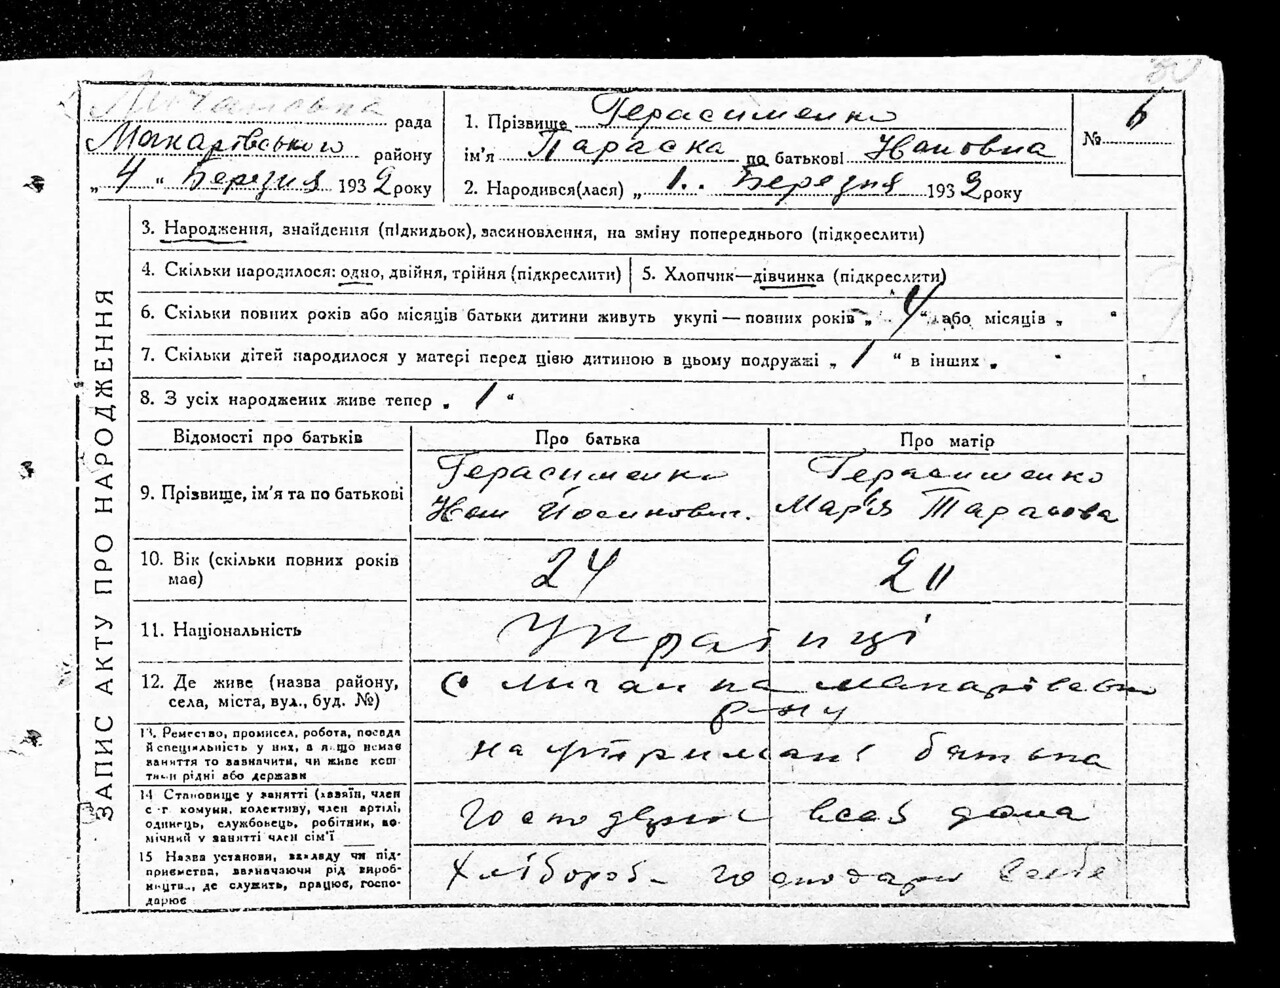 30
Личанська рада
Макарівського району
„ 4 “ Березня 1932 року
1. Прізвище Герасименко
ім'я Параска по батькові Івановна
2. Народився(лася) „ 1. Березня 1932 року
№ 6
ЗАПИС АКТУ ПРО НАРОДЖЕННЯ
3. Народження, знайдення (підкидьок), засиновлення, на зміну попереднього (підкреслити)
4. Скільки народилося: одно, двійня, трійня (підкреслити)
5. Хлопчик—дівчинка (підкреслити)
6. Скільки повних років або місяців батьки дитини живуть укупі — повних років „ 4 “ або місяців „ “
7. Скільки дітей народилося у матері перед цією дитиною в цьому подружжі „ 1 “ в інших „ “
8. З усіх народжених живе тепер „ 1 “
Відомості про батьків
Про батька
Про матір
9. Прізвище, ім'я та по батькові
Герасименко
Герасименко
Марія Тарасова
10. Вік (скільки повних років має)
24
20
11. Національність
Українці
12. Де живе (назва району,
села, міста, вул., буд. №)
с Личанка Макарівськ
р-ну
13. Ремество, промисел, робота, посада
й спеціяльність у них, а якщо немає
заняття то зазначити, чи живе кош
тами рідні або держави
на утримані батька
14 Становище у занятті (хазяїн, член
с-г комуни, колективу, член артілі,
одинець, службовець, робітник, по-
мічний у занятті член сім'ї
господарює дома
15 Назва установи, закладу чи під-
приємства, зазначаючи рід вироб-
ництва, де служить, працює, госпо-
дарює
Хлібороб